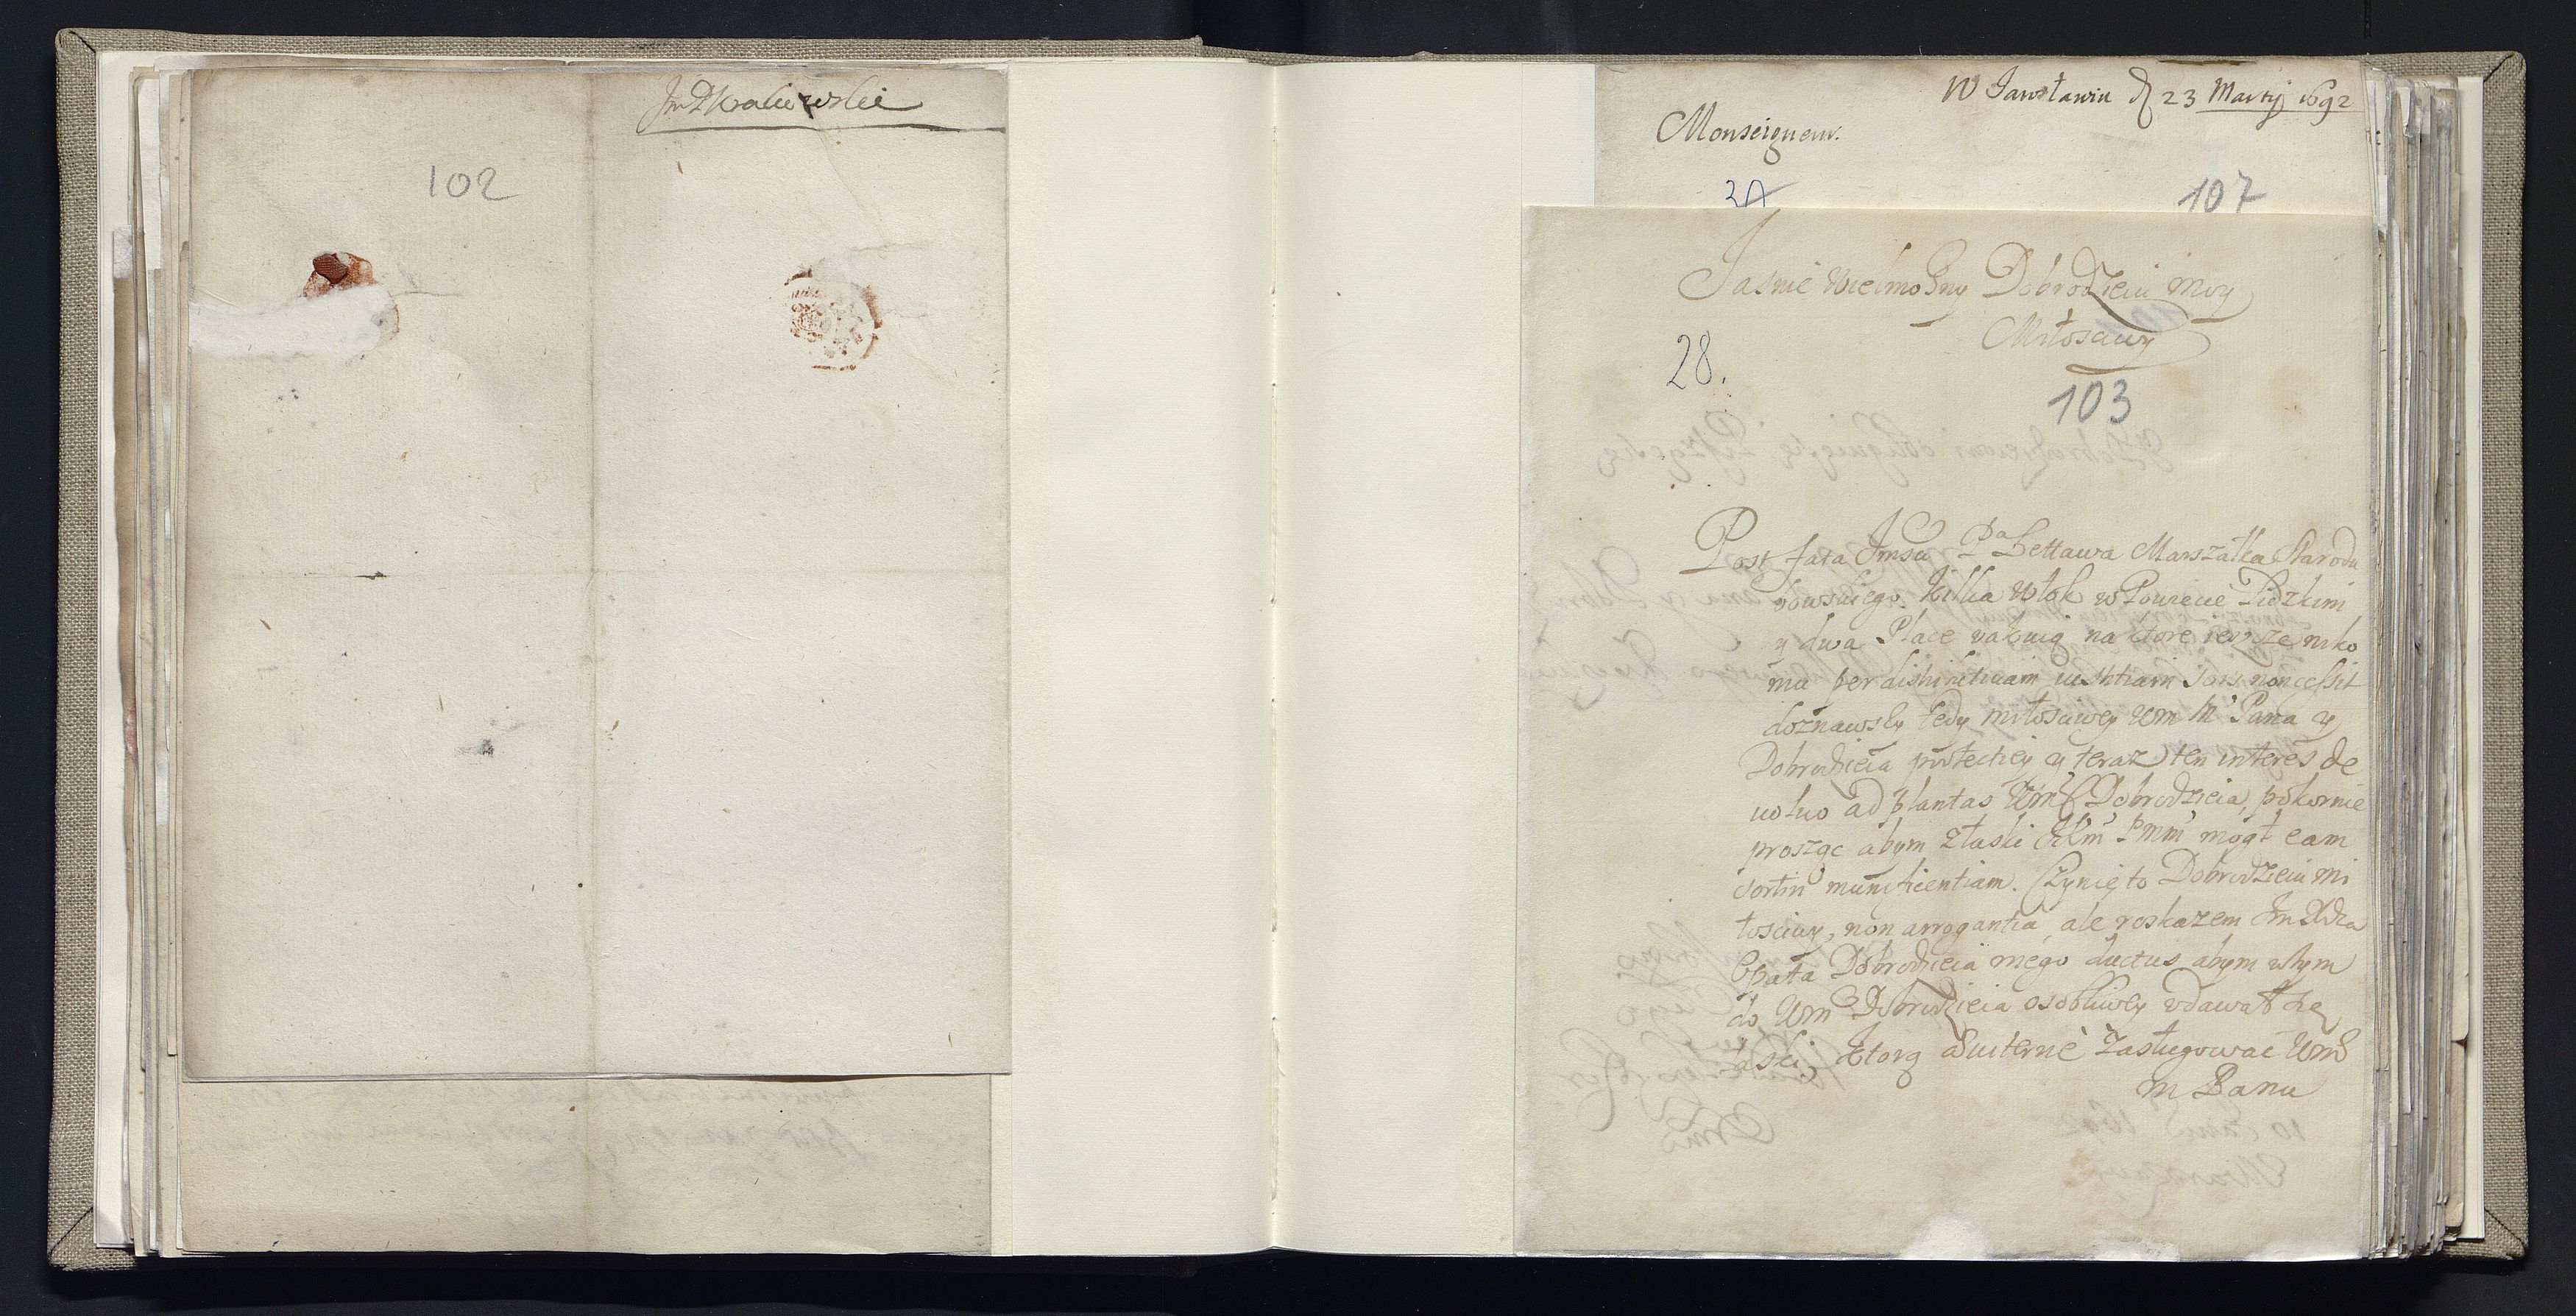 102
W Jarosławiu d 23 Martij 1692
Monseigneur.
107
Jasnie Wielmożny Dobrodzieiu moy
Miłosciwy
28.
103
Post fata Jmści Pa Marszałka Starodu
bowskiego. Kilka włok w Powiecie Lidzkim
y dwa Place vakuią na ktore ieszcze niko
mu per distributivam iustitiam sors non cessit
doznawszy tedy miłosciwey Wm M Pana y
Dobrodzieia protectiey y teraz ten interes de
uoluo ad plantas Wm Dobrodzieia, pokornie
prosząc abym z łaski Wm Pmm mogł eam
sortiri munificentiam. Czynię to Dobrodzieiu mi
łosciwy, non arrogantia, ale roskazem Jm Xdza
Opata Dobrodzieia mego ductus abym w tym
do Wm Dobrodzieia osobliwey vdawał się
łaski, ktorą zasługowac Wm
m Panu